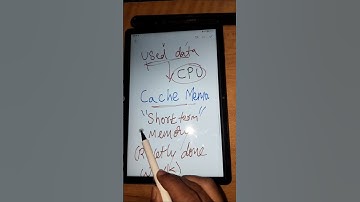 Used data
CPU
Cache Memo
"Short term"
Memory
done